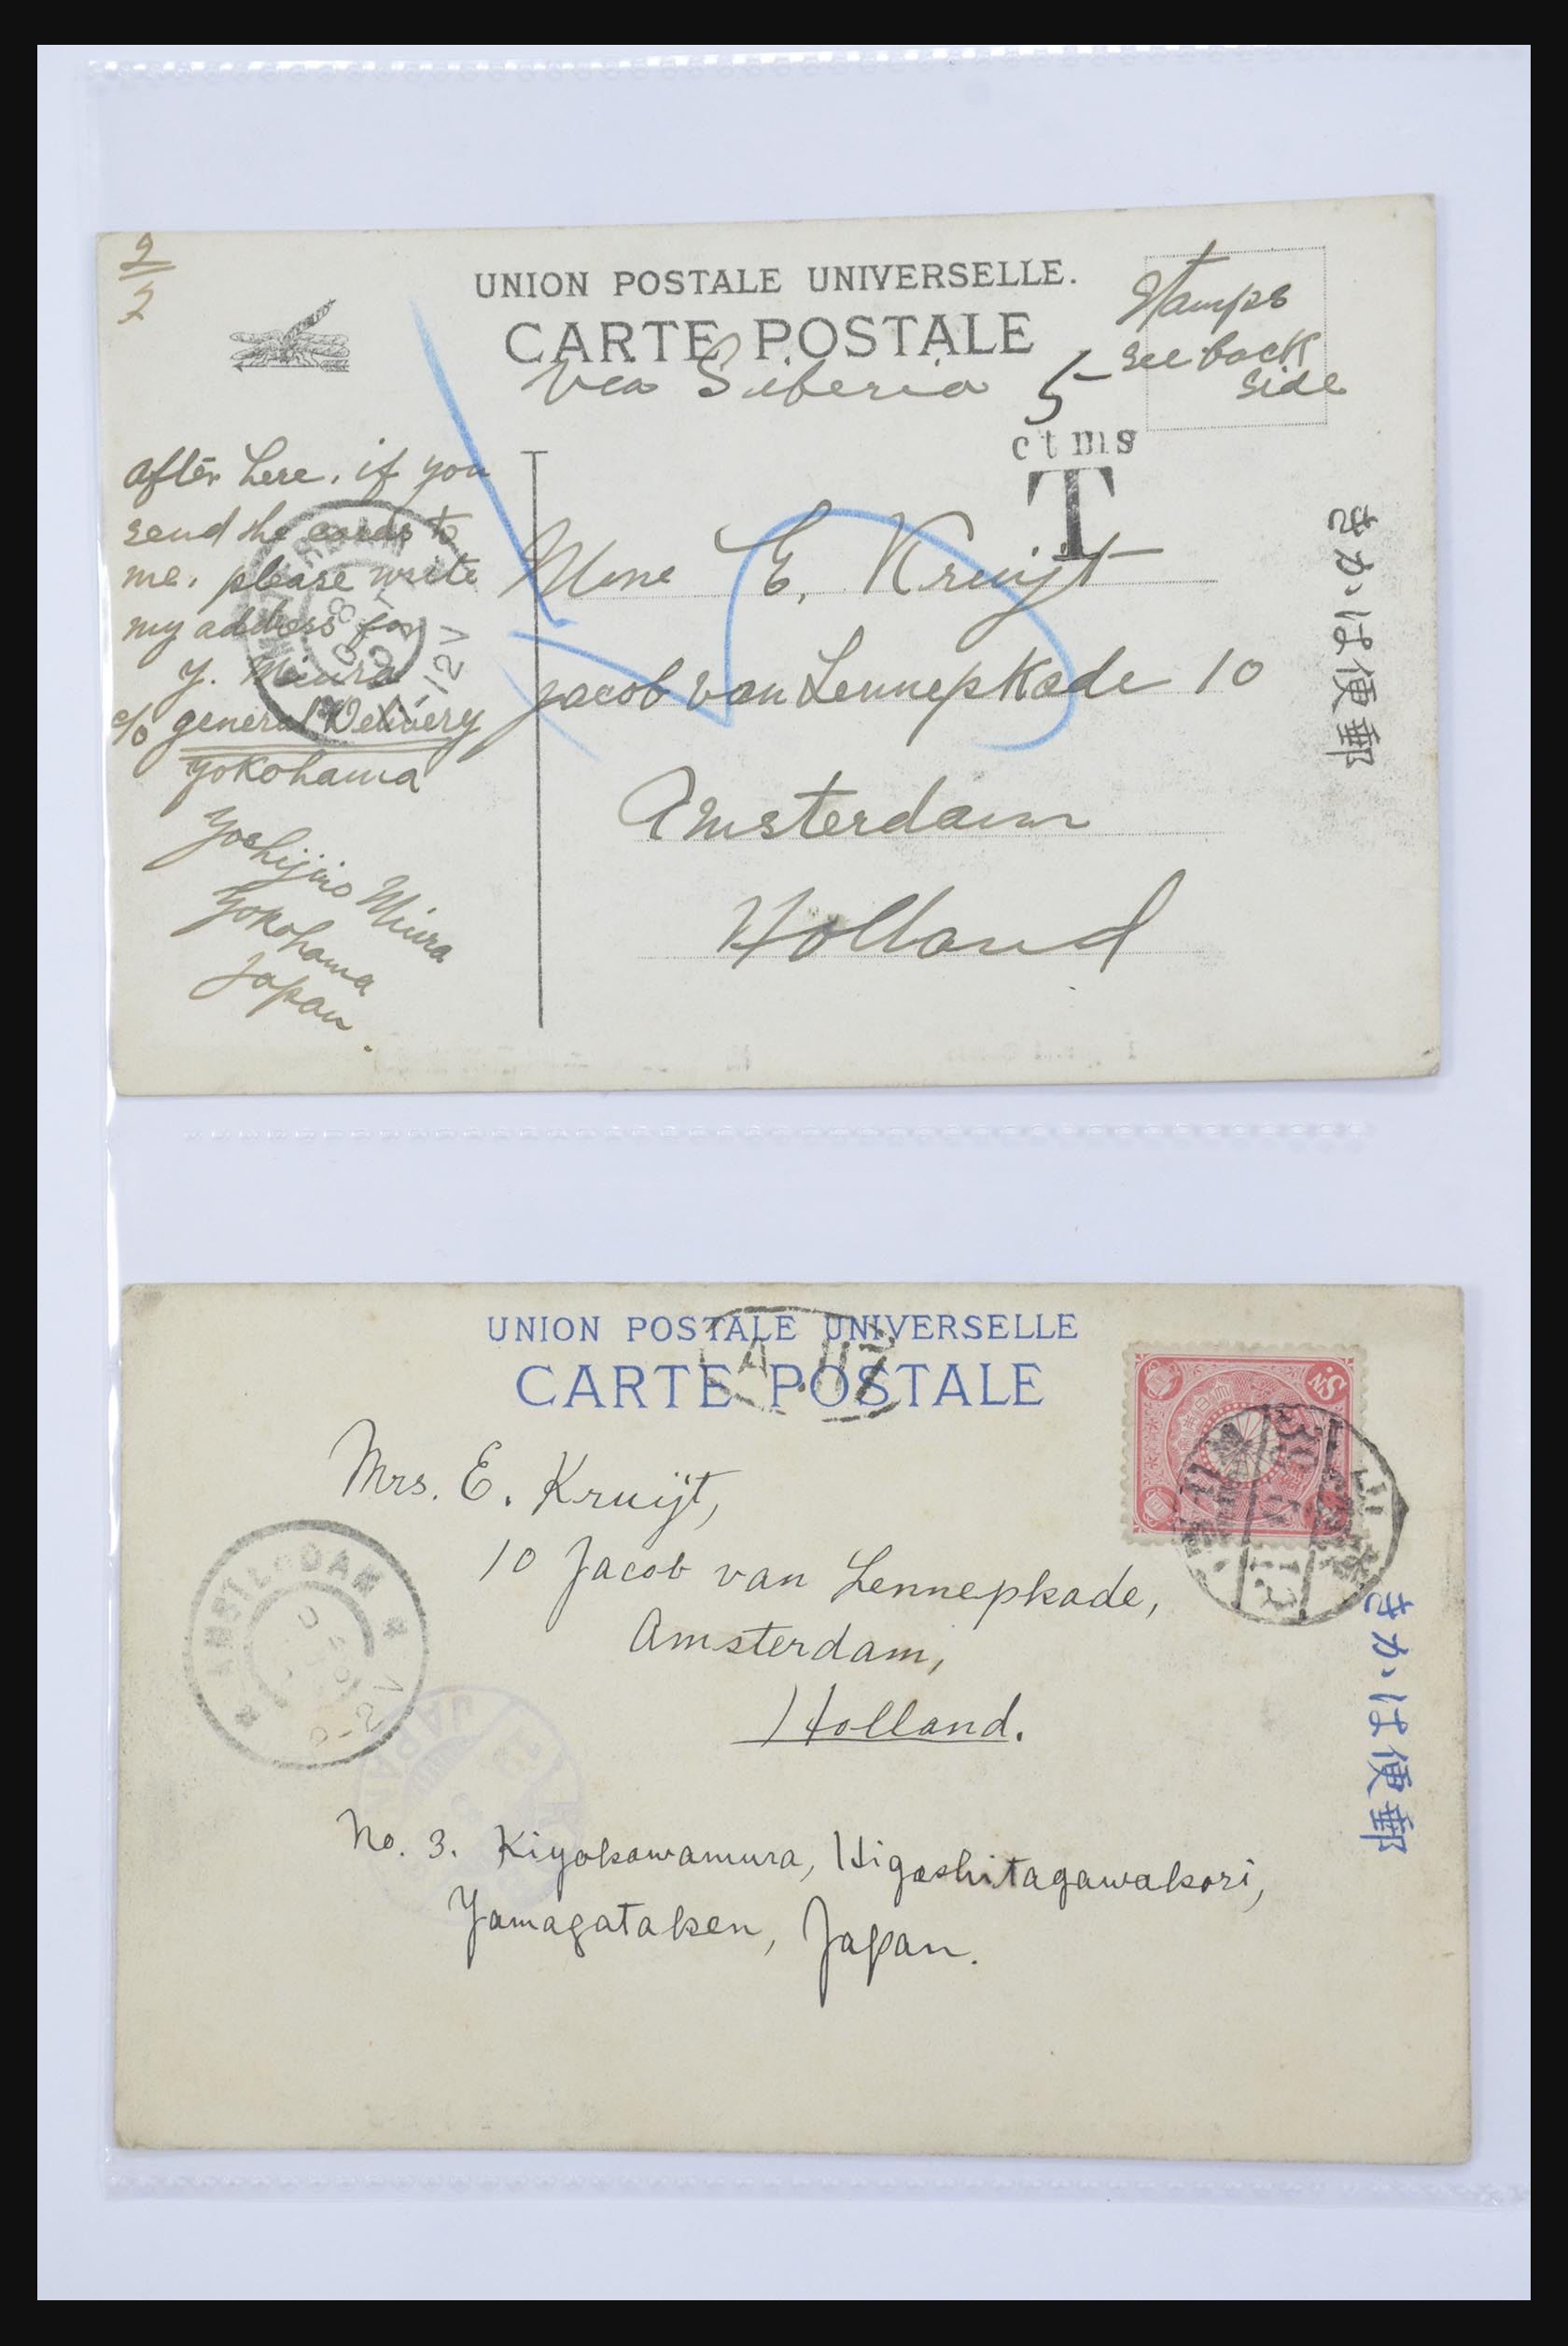 2
2
UNION POSTALE UNIVERSELLE.
CARTE POSTALE
Via Siberia
Stamps
see back
side
5
ctms
T
きかは便郵
After here, if you
send the cards to
me, please write
my address for
Y. Miura
c/o general Delivery
Yokohama
Yoshijiro Miura
Yokohama
Japan.
12V
Mme E. Kruijt
Jacob van Lennepkade 10
Amsterdam
Holland
UNION POSTALE UNIVERSELLE
CARTE POSTALE
Mrs. E. Kruijt,
10 Jacob van Lennepkade,
Amsterdam,
Holland.
AMSTERDAM
JAPAN
きかは便郵
No. 3. Kiyokawamura, Higashitagawakori,
Yamagataken, Japan.